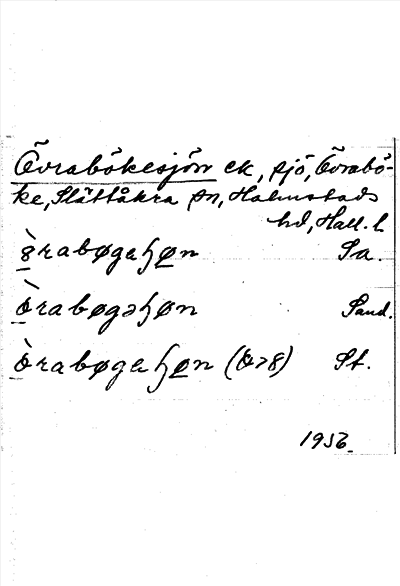 Övrabökesjön ek, sjö, Övrabö-
ke, Slättåkra sn, Halmstads
hd, Hall. l
òrabøgaɧøn Sa.
òrabøgəɧøn Sand.
òrabøgaɧøn St.
1956